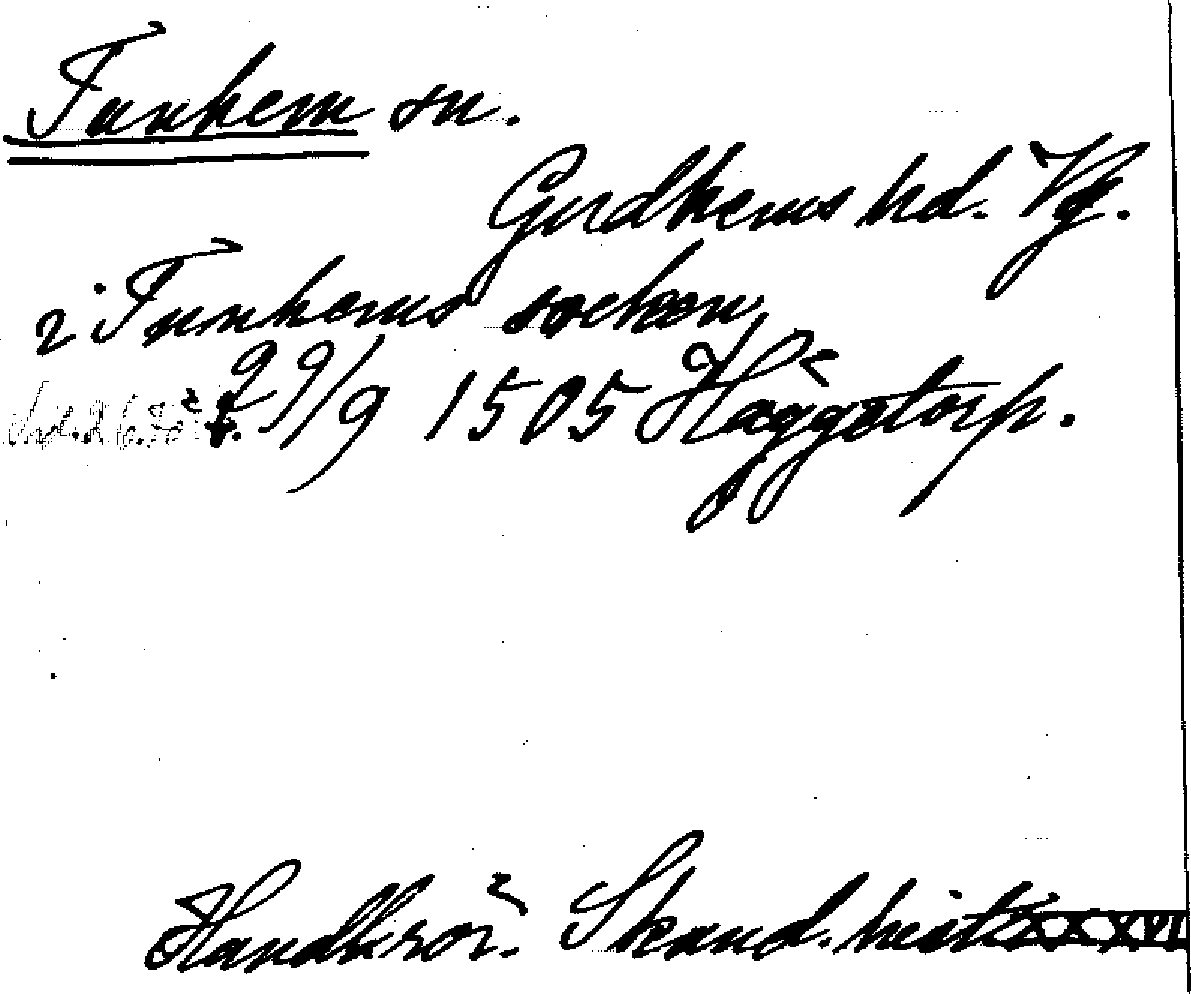 Tunhem sn.
Gudhems hd. Vg.
i Tunhems socken,
29/9 1505 Häggetorp.
Handl. rör. Skand. hist. XXXVI